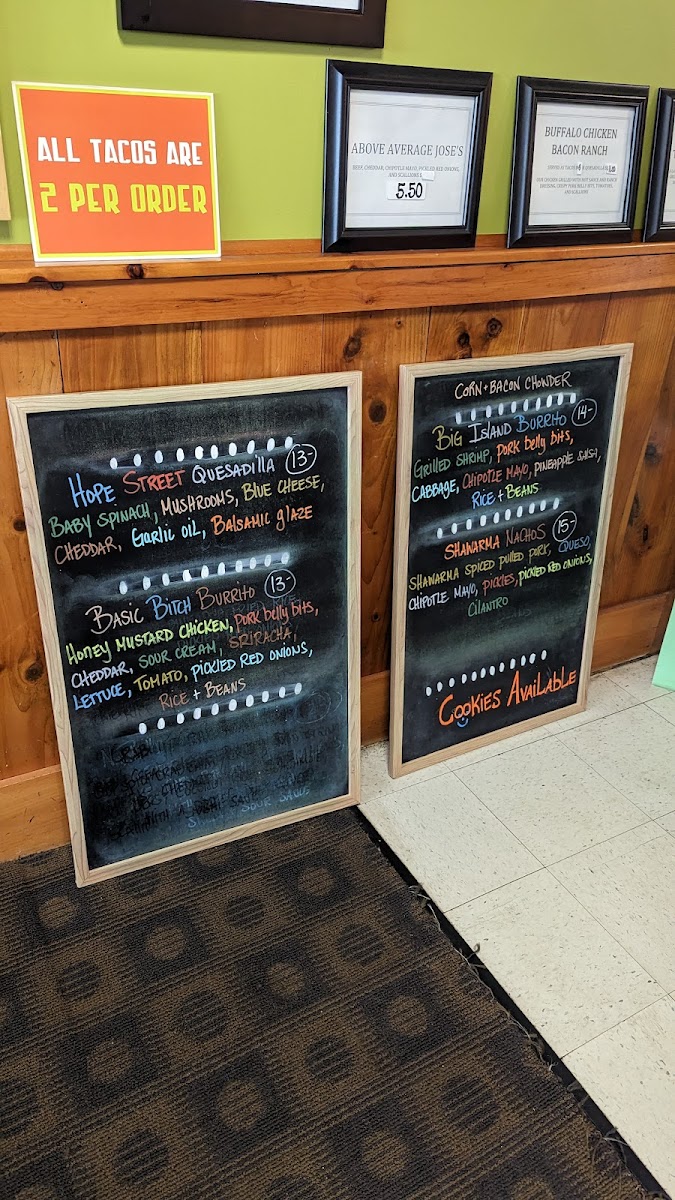 ALL TACOS ARE
2 PER ORDER
ABOVE AVERAGE JOSE'S
BEEF, CHEDDAR, CHIPOTLE MAYO, PICKLED RED ONIONS,
AND SCALLIONS
5.50
BUFFALO CHICKEN
BACON RANCH
HOPE STREET QUESADILLA 13-
BABY SPINACH, MUSHROOMS, BLUE CHEESE,
CHEDDAR, GARLIC OIL, BALSAMIC GLAZE
BASIC BITCH BURRITO 13-
HONEY MUSTARD CHICKEN, PORK BELLY BITS,
CHEDDAR, SOUR CREAM, SRIRACHA,
LETTUCE, TOMATO, PICKLED RED ONIONS,
RICE + BEANS
CORN + BACON CHOWDER
BIG ISLAND BURRITO 14-
GRILLED SHRIMP, PORK BELLY BITS,
CABBAGE, CHIPOTLE MAYO, PINEAPPLE SALSA,
RICE + BEANS
SHAWARMA NACHOS 15-
SHAWARMA SPICED PULLED PORK, QUESO,
CHIPOTLE MAYO, PICKLES, PICKLED RED ONIONS,
CILANTRO
COOKIES AVAILABLE